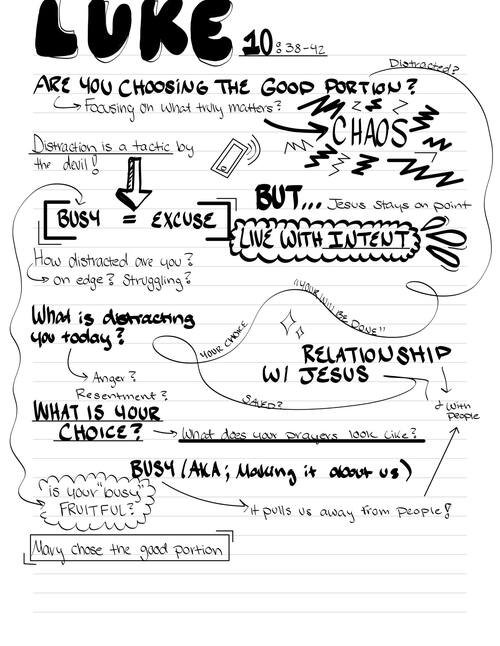 LUKE 10:38-42
Distracted?
ARE YOU CHOOSING THE GOOD PORTION?
Focusing on what truly matters?
CHAOS
Distraction is a tactic by
the devil!
BUT... Jesus stays on point
[BUSY = EXCUSE]
LIVE WITH INTENT
How distracted are you?
on edge? Struggling?
"YOUR WILL BE DONE"
What is distracting
you today?
YOUR CHOICE
RELATIONSHIP
W/ JESUS
Anger?
Resentment?
SAVED?
& with
people
WHAT IS YOUR
CHOICE? → What does your prayers look like?
BUSY (AKA; Making it about us)
is your "busy"
FRUITFUL?
it pulls us away from people!
Mary chose the good portion